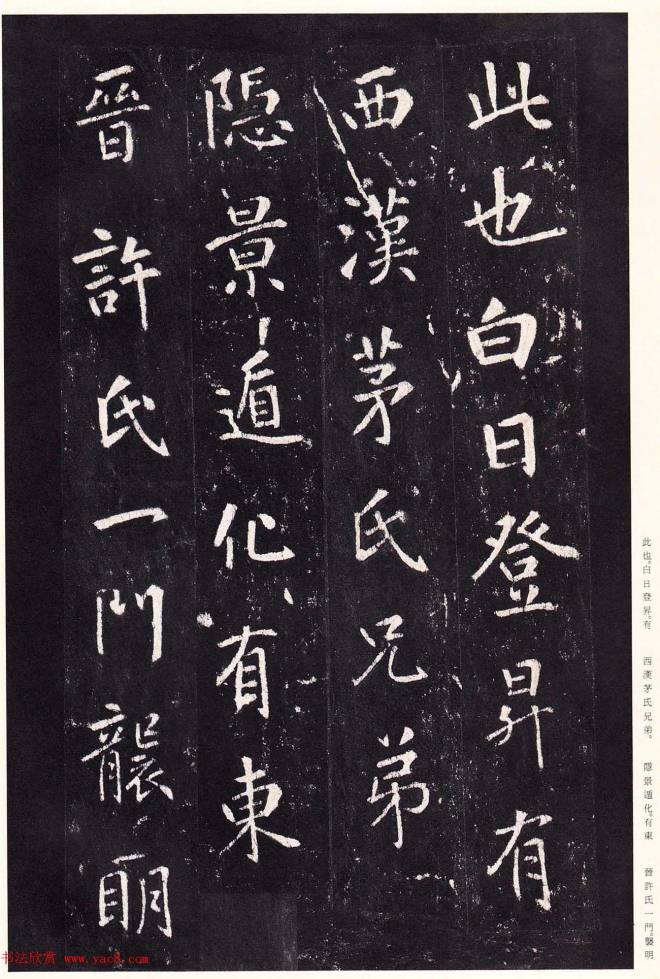 此也白日登昇有
西漢茅氏兄弟
隱景遁化有東
晉許氏一門襲明
此也。白日登昇。有　西漢茅氏兄弟。　隱景遁化。有東　晉許氏一門。襲明
书法欣赏 www.yac8.com